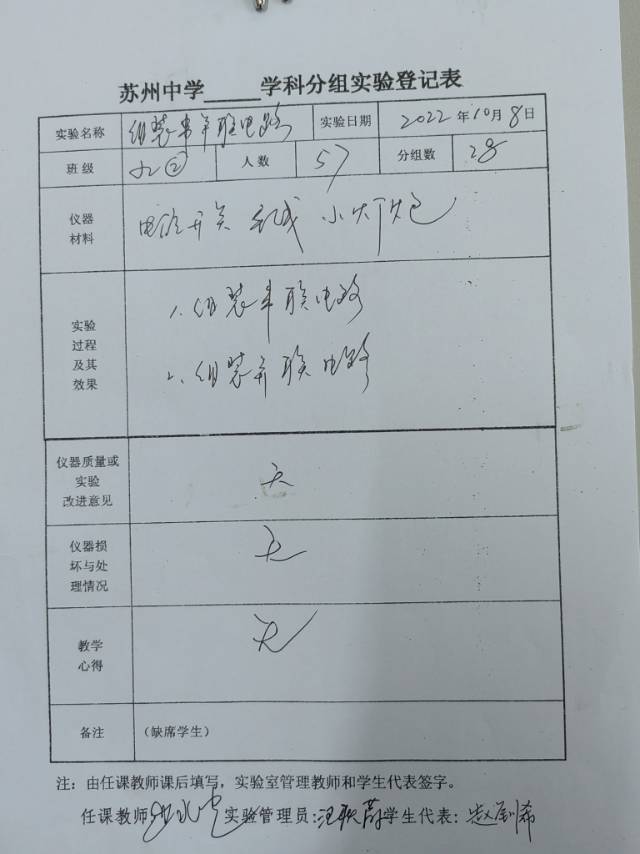 苏州中学______学科分组实验登记表
实验名称 组装串并联电路 实验日期 2022年10月8日
班级 九② 人数 57 分组数 28
仪器材料 电池 开关 导线 小灯泡
实验过程及其效果
1、组装串联电路
2、组装并联电路
仪器质量或实验改进意见 无
仪器损坏与处理情况 无
教学心得 无
备注 (缺席学生)
注：由任课教师课后填写，实验室管理教师和学生代表签字。
任课教师 实验管理员: 学生代表: